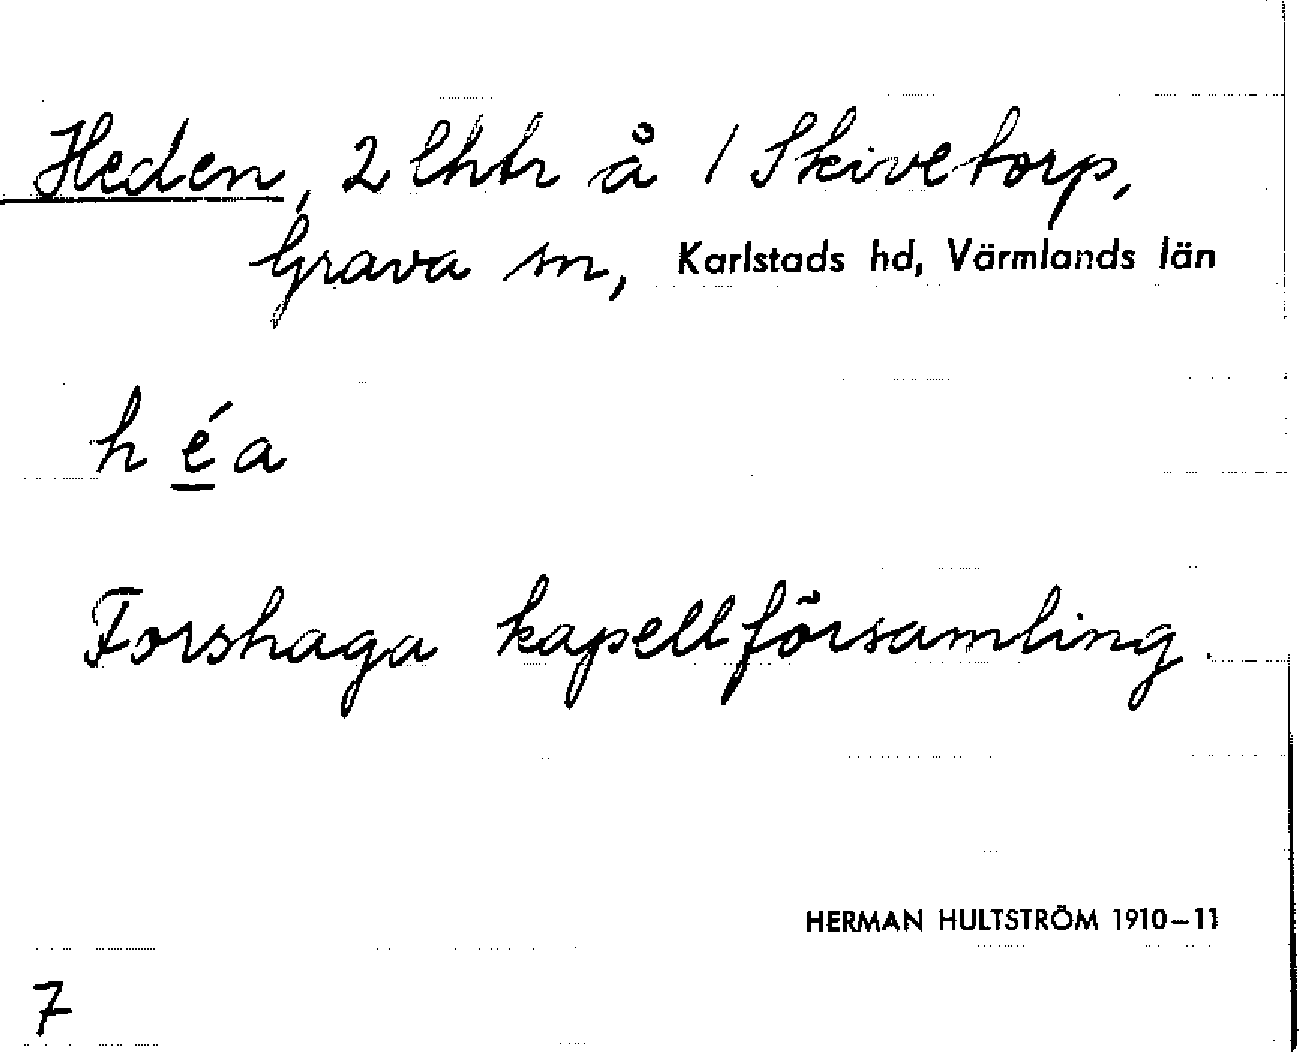 Heden, 2 lhtr å 1 Skivetorp,
Grava sn, Karlstads hd, Värmlands län
h é a
Forshaga kapellförsamling.
HERMAN HULTSTRÖM 1910–11
7